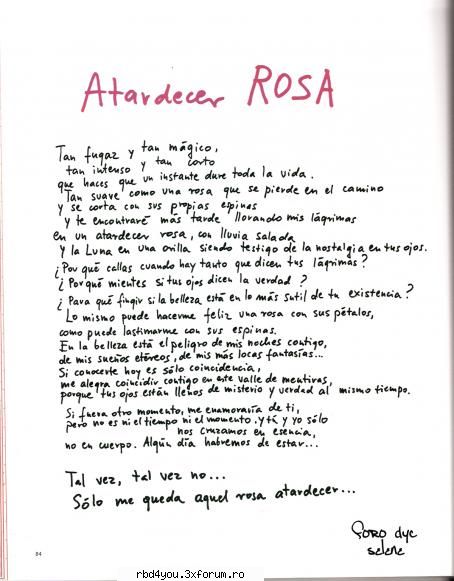 Atardecer ROSA
Tan fugaz y tan mágico,
tan intenso y tan corto
que haces que un instante dure toda la vida.
Tan suave como una rosa que se pierde en el camino
y se corta con sus propias espinas
y te encontraré más tarde llorando mis lágrimas
en un atardecer rosa, con lluvia salada
y la Luna en una orilla siendo testigo de la nostalgia en tus ojos.
¿Por qué callas cuando hay tanto que dicen tus lágrimas?
¿Por qué mientes si tus ojos dicen la verdad?
¿Para qué fingir si la belleza está en lo más sutil de tu existencia?
Lo mismo puede hacerme feliz una rosa con sus pétalos,
como puede lastimarme con sus espinas.
En la belleza está el peligro de mis noches contigo,
de mis sueños etéreos, de mis más locas fantasías...
Si conocerte hoy es sólo coincidencia,
me alegra coincidir contigo en este valle de mentiras,
porque tus ojos están llenos de misterio y verdad al mismo tiempo.
Si fuera otro momento, me enamoraría de ti,
pero no es ni el tiempo ni el momento. Y tú y yo sólo
nos cruzamos en esencia,
no en cuerpo. Algún día habremos de estar...
Tal vez, tal vez no...
Sólo me queda aquel rosa atardecer...
dyc
selene
84
rbd4you.3xforum.ro